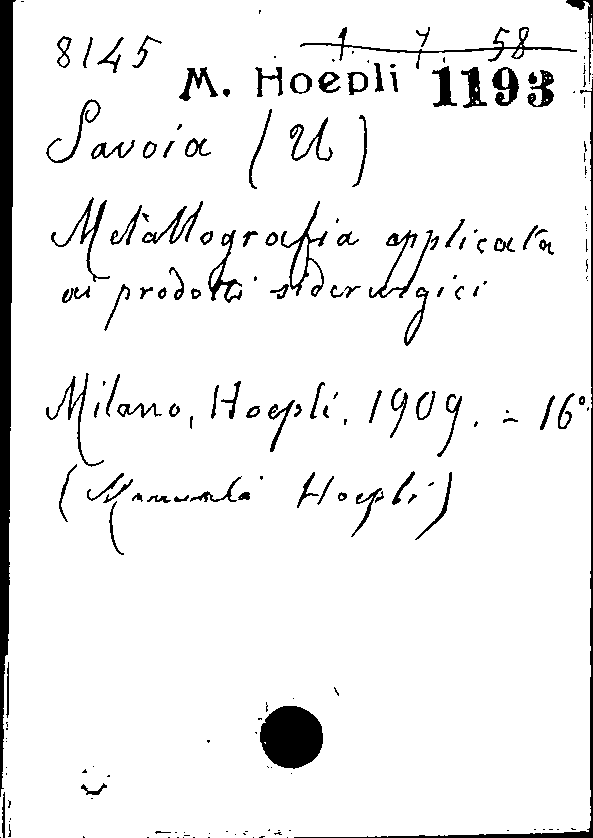 8145 1 7 58
M. Hoepli 1193
Savoia (U)
Metallografia applicata
ai prodotti siderurgici
Milano, Hoepli, 1909. = 16°
(Manuali Hoepli)